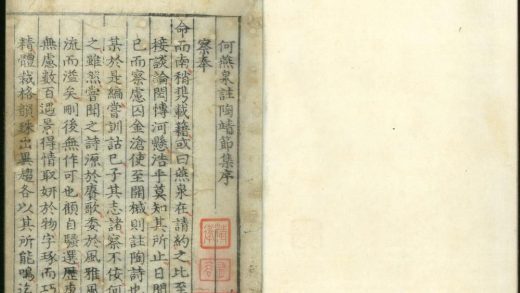 何燕泉註陶靖節集序
察奉
命而南稍携載籍或曰燕泉在請約之比至
接談論閎博河懸浩乎莫知其所止日閒
已而察慮囚金滄使至開椷則註陶詩也
某於是編嘗訓詁巳子其志諸察不佞何
之雖然嘗聞之詩源於賡歌委於風雅風
流而溢矣刪後無作可也顧自騷選歷東
無慮數百遇景得情取妍於物字琢而巧
精體裁格韻殊出異趨各以其所能鳴迄